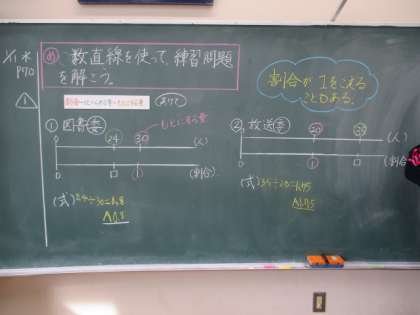 1/1 水
P70
め 数直線を使って、練習問題
を解こう。
割合が1をこえる
こともある。
① 図書委
もとにする量
0 24 30 (人)
0 □ 1 (割合)
(式) 24÷30=0.8
A 0.8
② 放送委
0 20 35 (人)
0 1 □ (割合)
(式) 35÷20=1.75
A 1.75